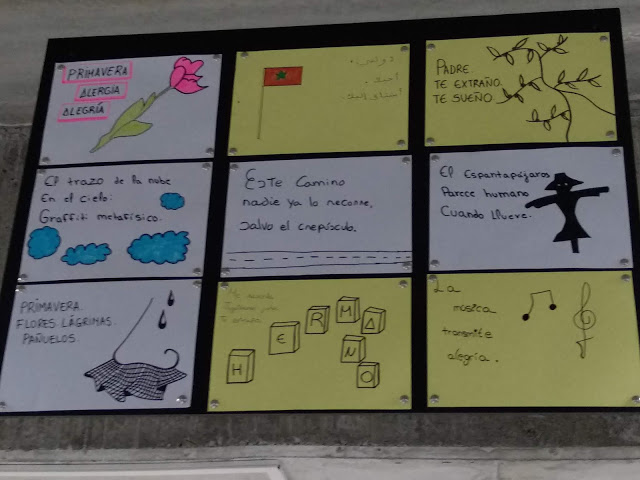 PRIMAVERA
ALERGIA
ALEGRÍA
أحبك .
أشتاق إليك .
PADRE.
TE EXTRAÑO.
TE SUEÑO.
El trazo de la nube
En el cielo:
Graffiti metafísico.
Este Camino
nadie ya lo recorre,
salvo el crepúsculo.
El Espantapájaros
Parece humano
Cuando llueve.
PRIMAVERA.
FLORES LÁGRIMAS.
PAÑUELOS.
Me acuerdo
Te extraño
HERMANO
La
música
transmite
alegría.